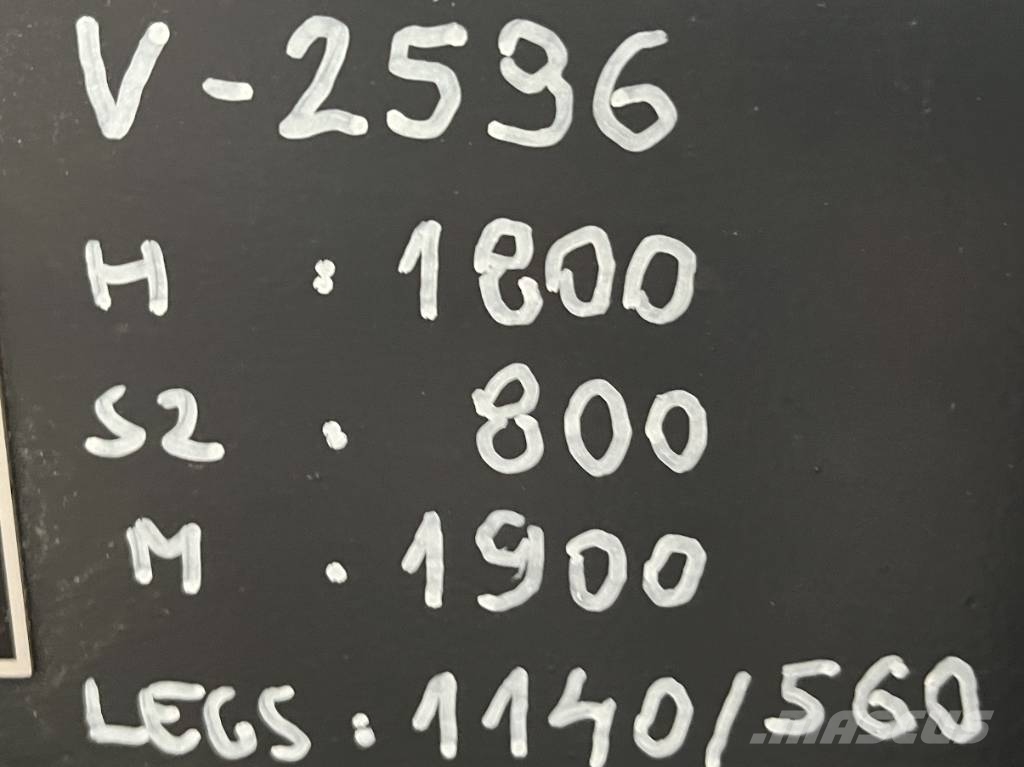 V-2596
H : 1800
S2 : 800
M . 1900
LEGS : 1140/560
MASCUS